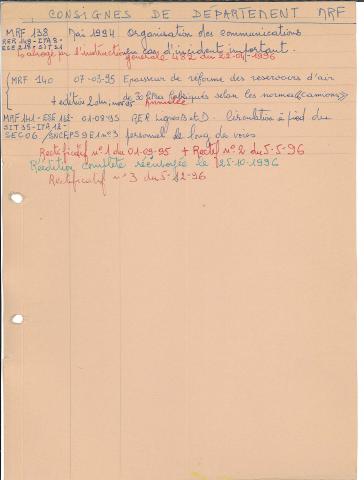 CONSIGNES DE DÉPARTEMENT MRF
MRF 138 Mai 1994 Organisation des communications
RER 148 - ITA 9 -
en cas d'incident important.
ESE 219 - SIT 21
abrogé par l'instruction générale 482 du 22-04-1996
MRF 140 07-03-95 Epaisseur de réforme des reservoirs d'air
de 30 litres fabriqués selon les normes «camions»
Annulée
MRF 141 - ESE 112 - 01-09-95 RER lignes B et D. Circulation à pied du
SIT 35 - ITA 12 -
SEC 06 / SNCF PS 9E1 N°3 personnel le long des voies
Rectificatif n°1 du 01-09-95 + Rectif n°2 du 5-5-96
Réédition complète le 25-10-1996
Rectificatif n°3 du 5-12-96